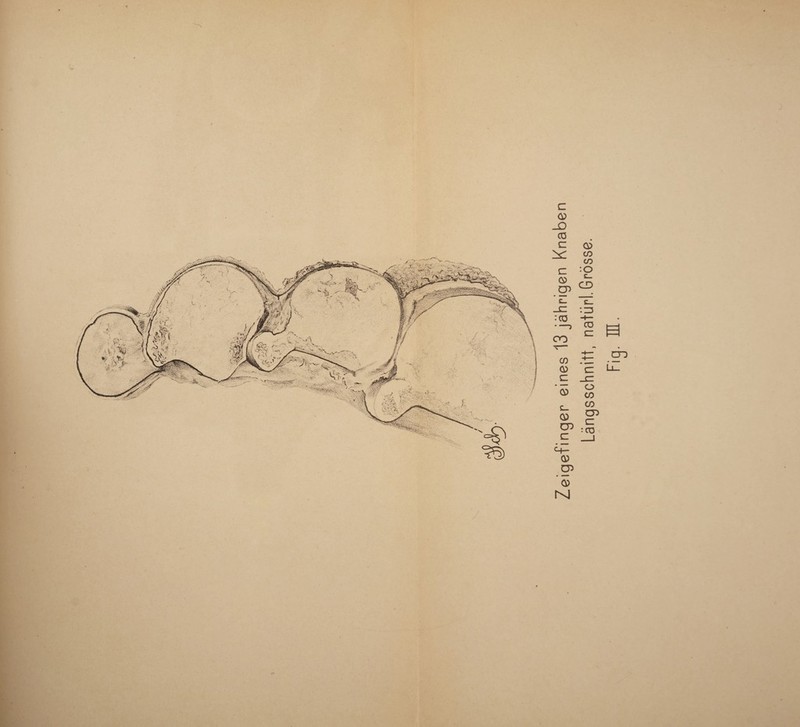 Sch.
Zeigefinger eines 13 jährigen Knaben
Längsschnitt, natürl. Grösse.
Fig. III.